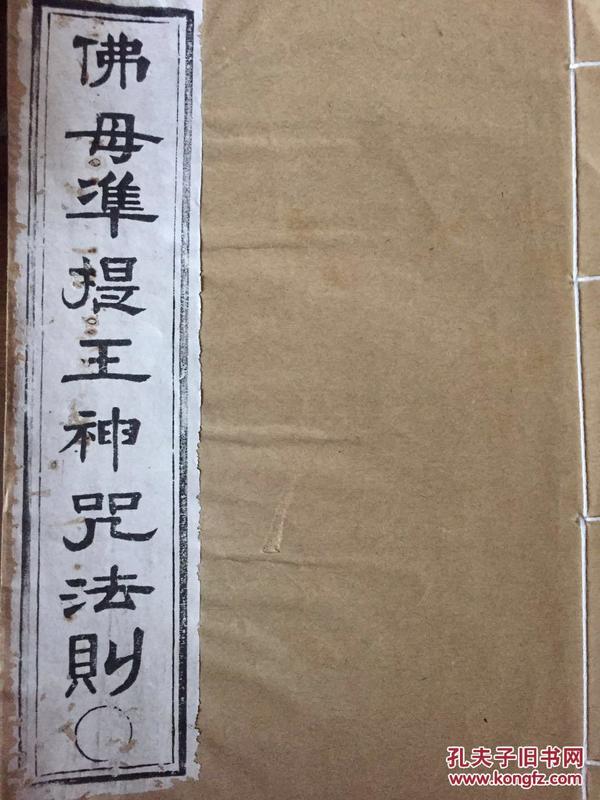 佛母準提王神咒法則
孔夫子旧书网
www.kongfz.com